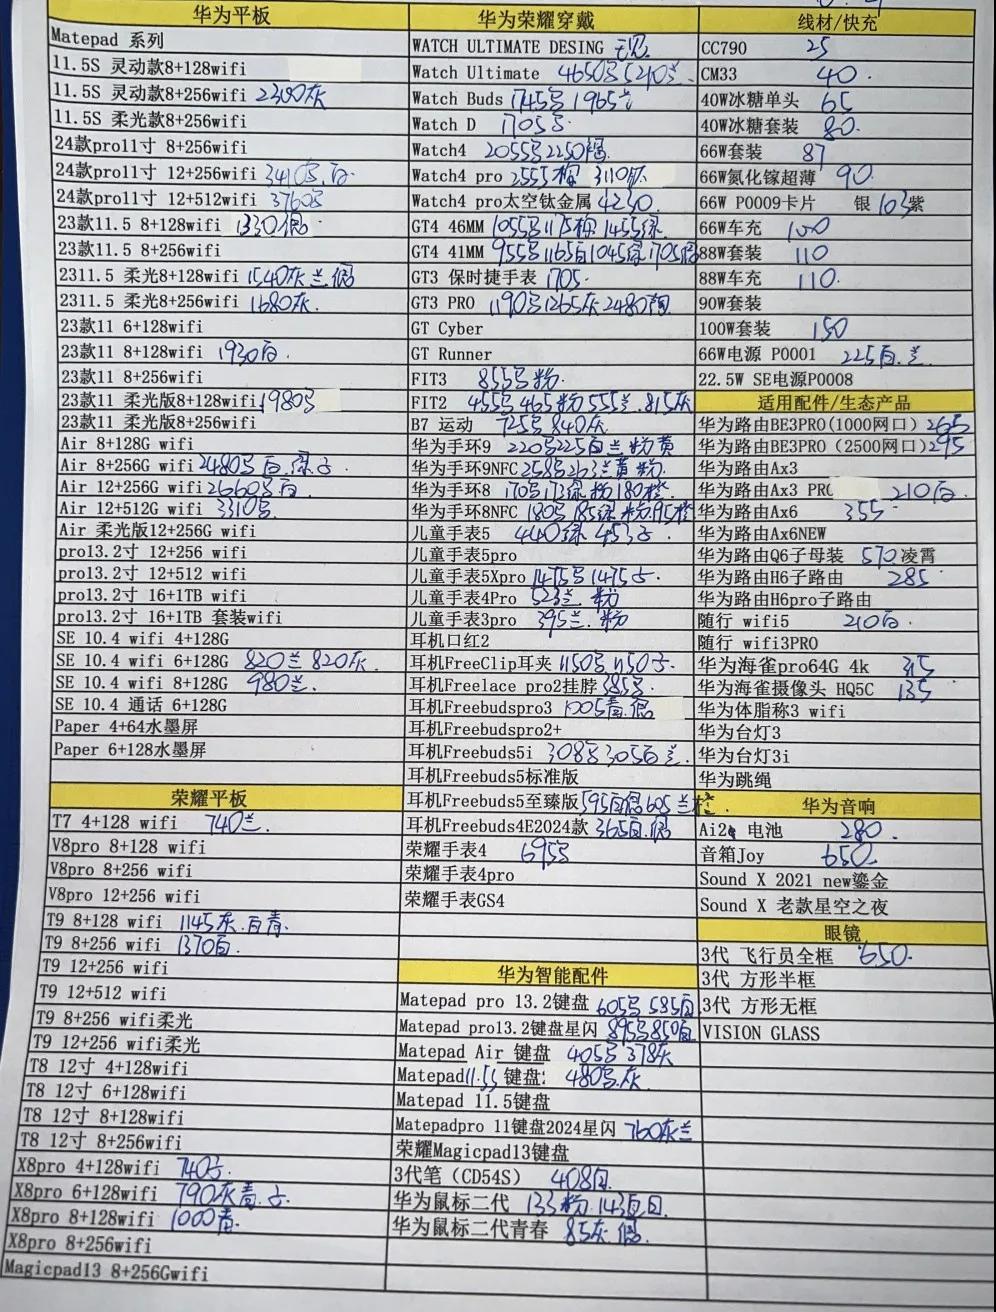 华为平板
Matepad 系列
11.5S 灵动款8+128wifi
11.5S 灵动款8+256wifi 2300灰
11.5S 柔光款8+256wifi
24款pro11寸 8+256wifi
24款pro11寸 12+256wifi 3410 白
24款pro11寸 12+512wifi 3760
23款11.5 8+128wifi 1330
23款11.5 8+256wifi
2311.5 柔光8+128wifi 1540灰兰
2311.5 柔光8+256wifi 1680灰.
23款11 6+128wifi
23款11 8+128wifi 1930白.
23款11 8+256wifi
23款11 柔光版8+128wifi 1980
23款11 柔光版8+256wifi
Air 8+128G wifi
Air 8+256G wifi 2480 白
Air 12+256G wifi 2660 白
Air 12+512G wifi 3310
Air 柔光版12+256G wifi
pro13.2寸 12+256 wifi
pro13.2寸 12+512 wifi
pro13.2寸 16+1TB wifi
pro13.2寸 16+1TB 套装wifi
SE 10.4 wifi 4+128G
SE 10.4 wifi 6+128G 820兰 820灰.
SE 10.4 wifi 8+128G 980兰.
SE 10.4 通话 6+128G
Paper 4+64水墨屏
Paper 6+128水墨屏
荣耀平板
T7 4+128 wifi 740兰.
V8pro 8+128 wifi
V8pro 8+256 wifi
V8pro 12+256 wifi
T9 8+128 wifi 1145灰.白青.
T9 8+256 wifi 1370白.
T9 12+256 wifi
T9 12+512 wifi
T9 8+256 wifi柔光
T9 12+256 wifi柔光
T8 12寸 4+128wifi
T8 12寸 6+128wifi
T8 12寸 8+128wifi
T8 12寸 8+256wifi
X8pro 4+128wifi 740
X8pro 6+128wifi 790灰青.
X8pro 8+128wifi 1000青.
X8pro 8+256wifi
Magicpad13 8+256Gwifi
华为荣耀穿戴
WATCH ULTIMATE DESING
Watch Ultimate 4650 5210兰.
Watch Buds 1745 1965
Watch D 1705
Watch4 2055 2250
Watch4 pro 2555 3110
Watch4 pro太空钛金属 4230
GT4 46MM 1055 1175 1455绿
GT4 41MM 955 1165白1045绿1705
GT3 保时捷手表 1705.
GT3 PRO 1190 1265灰2480
GT Cyber
GT Runner
FIT3 855 粉.
FIT2 455 465粉555兰.815灰
B7 运动 725 840灰
华为手环9 220 225白兰粉黄
华为手环9NFC 258 263兰黄粉.
华为手环8 170 173绿粉180橙
华为手环8NFC 180 185绿粉195橙
儿童手表5 440绿 453
儿童手表5pro
儿童手表5Xpro 1475 1475
儿童手表4Pro 523兰 粉
儿童手表3pro 395兰.粉
耳机口红2
耳机FreeClip耳夹 1150 1150
耳机Freelace pro2挂脖 385
耳机Freebudspro3 1005青.
耳机Freebudspro2+
耳机Freebuds5i 308 305白兰.
耳机Freebuds5标准版
耳机Freebuds5至臻版 595白 605兰橙.
耳机Freebuds4E2024款 365白.
荣耀手表4 695
荣耀手表4pro
荣耀手表GS4
华为智能配件
Matepad pro 13.2键盘 605 585白
Matepad pro13.2键盘星闪 895 850白
Matepad Air 键盘 405 378灰
Matepad11.5S 键盘: 480 灰.
Matepad 11.5键盘
Matepadpro 11键盘2024星闪 760灰兰
荣耀Magicpad13键盘
3代笔（CD54S） 408白.
华为鼠标二代 133粉.143白
华为鼠标二代青春 85灰
线材/快充
CC790 25
CM33 40.
40W冰糖单头 65
40W冰糖套装 80.
66W套装 87
66W氮化镓超薄 90.
66W P0009卡片 银 103紫
66W车充 100
88W套装 110
88W车充 110.
90W套装
100W套装 150
66W电源 P0001 225白.兰.
22.5W SE电源P0008
适用配件/生态产品
华为路由BE3PRO(1000网口) 265
华为路由BE3PRO（2500网口) 295
华为路由Ax3
华为路由Ax3 PRO 210白.
华为路由Ax6 355
华为路由Ax6NEW
华为路由Q6子母装 570凌霄
华为路由H6子路由 285
华为路由H6pro子路由
随行 wifi5 210白.
随行 wifi3PRO
华为海雀pro64G 4k 315
华为海雀摄像头 HQ5C 135
华为体脂称3 wifi
华为台灯3
华为台灯3i
华为跳绳
华为音响
Ai2e 电池 280.
音箱Joy 650.
Sound X 2021 new鎏金
Sound X 老款星空之夜
眼镜
3代 飞行员全框 650.
3代 方形半框
3代 方形无框
VISION GLASS